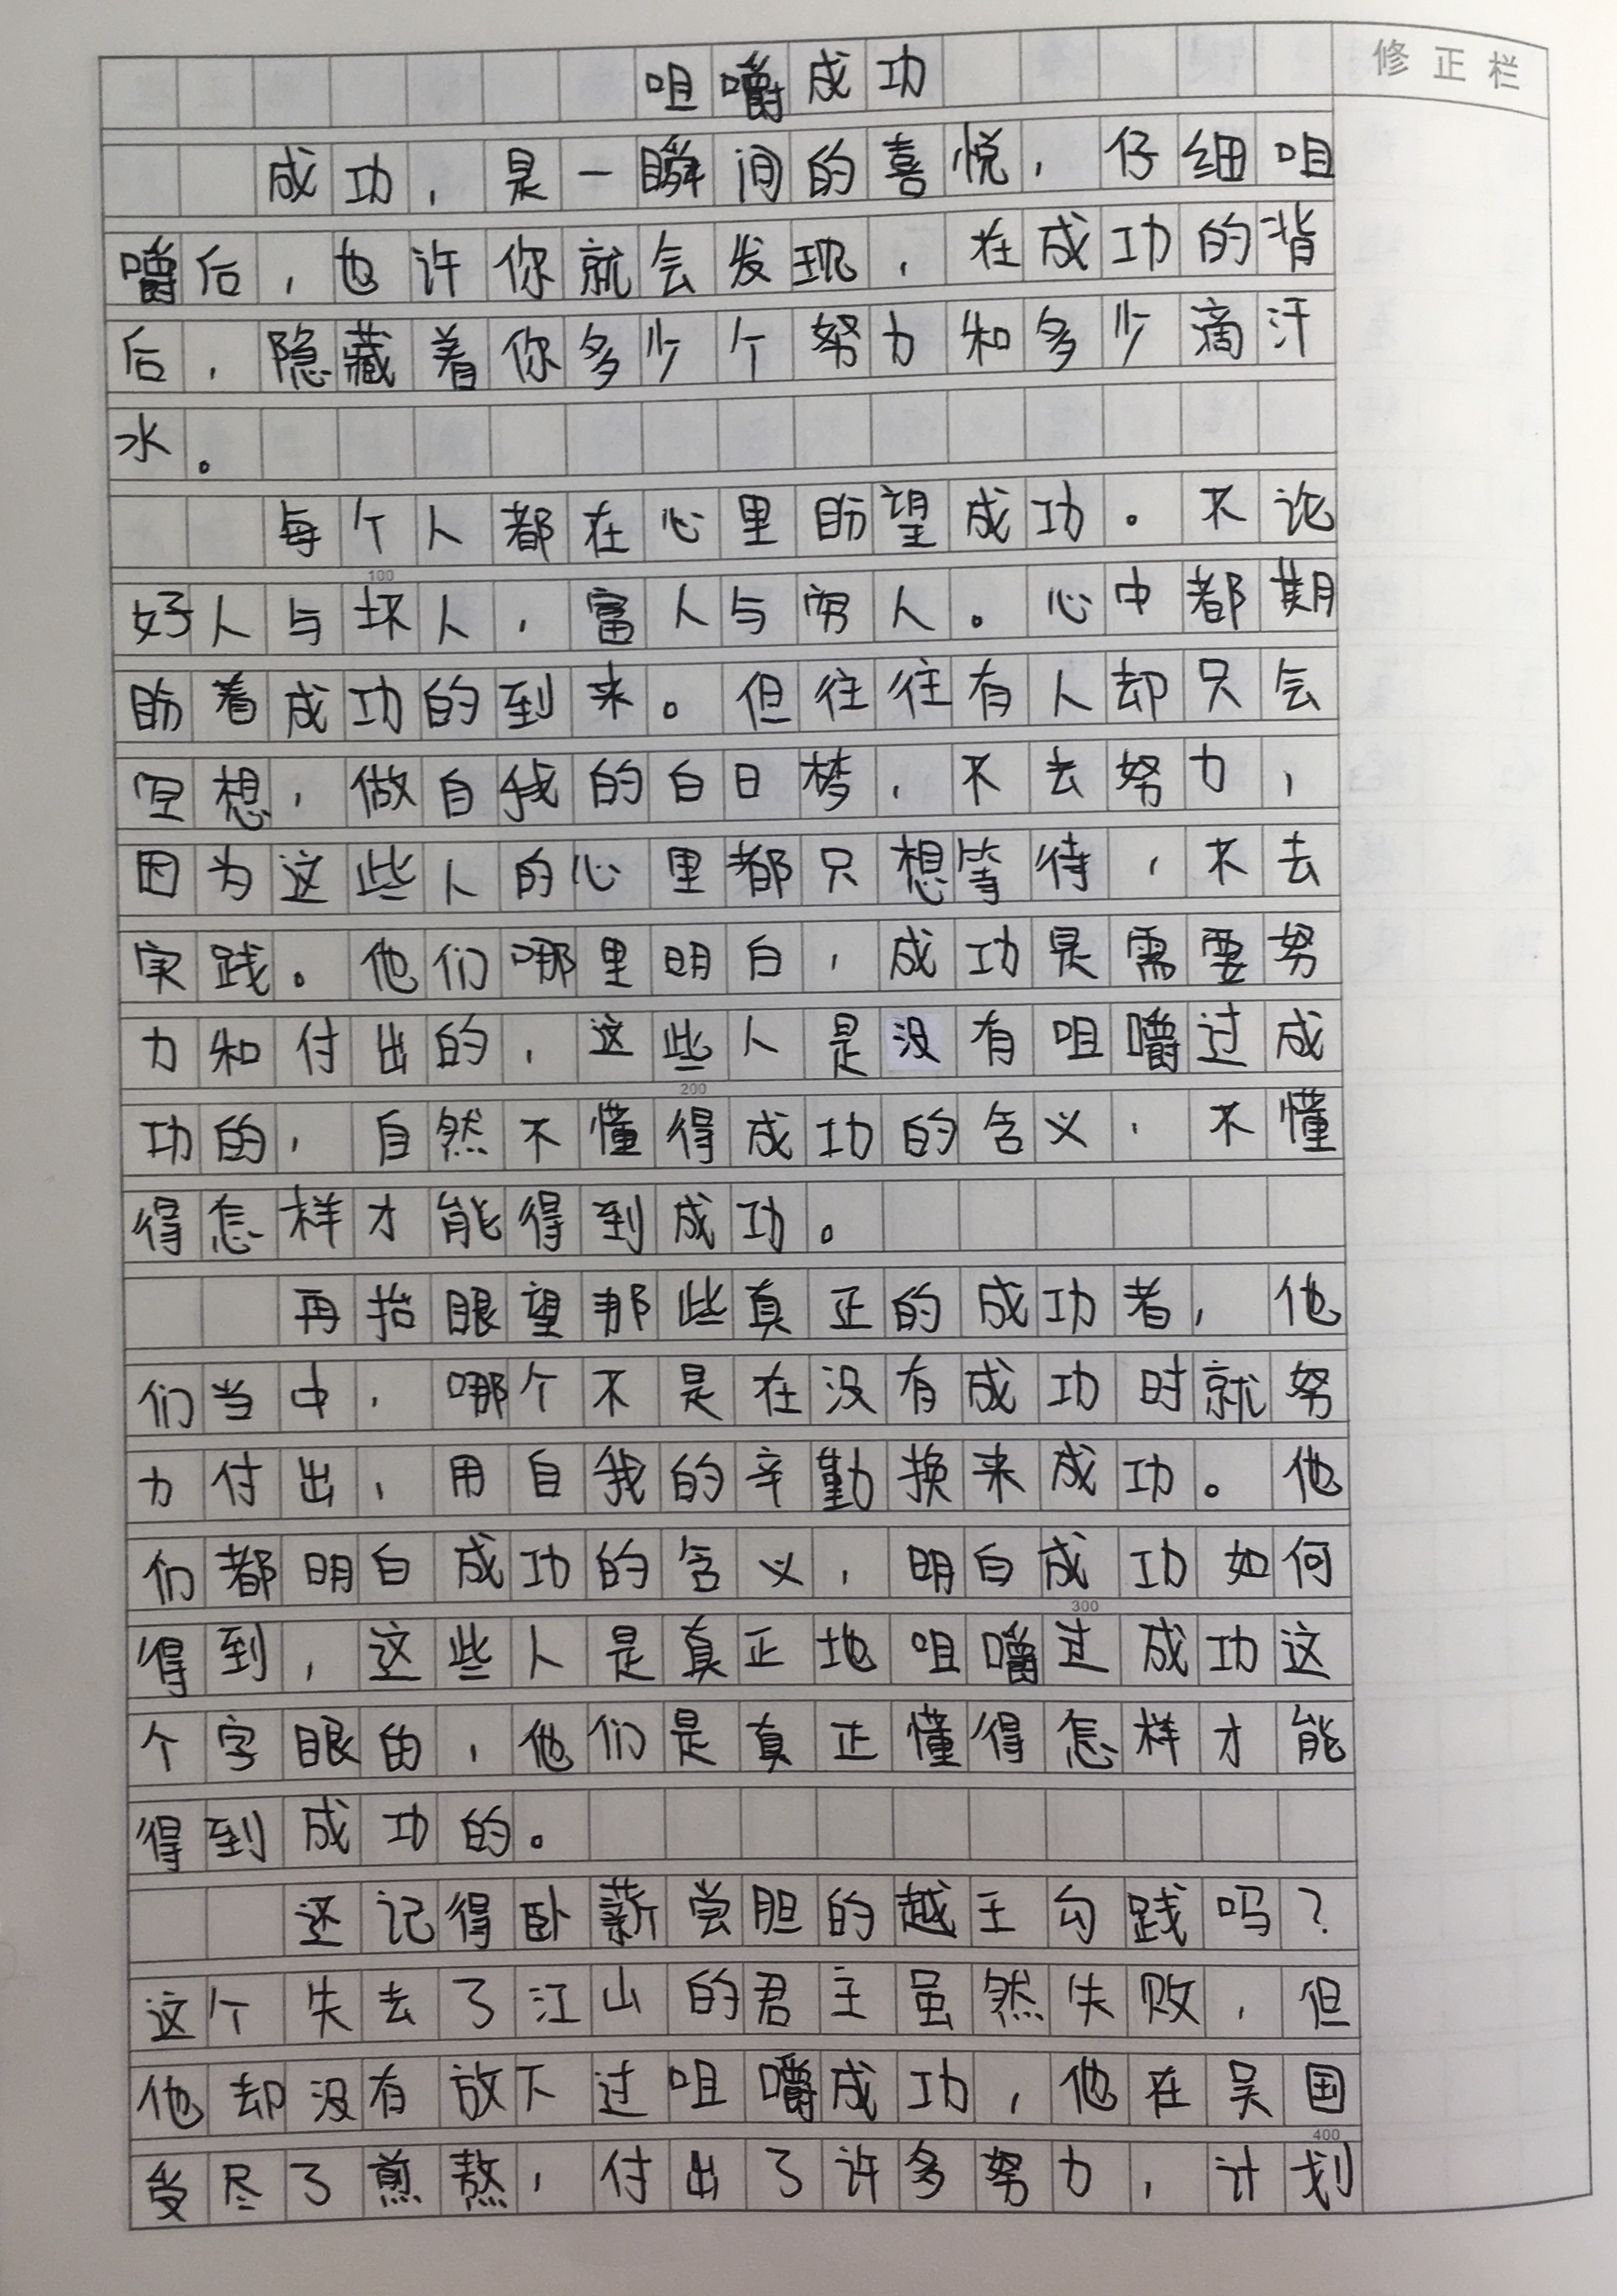 修正栏
咀嚼成功
成功，是一瞬间的喜悦，仔细咀
嚼后，也许你就会发现，在成功的背
后，隐藏着你多少个努力和多少滴汗
水。
每个人都在心里盼望成功。不论
100
好人与坏人，富人与穷人。心中都期
盼着成功的到来。但往往有人却只会
空想，做自我的白日梦，不去努力，
因为这些人的心里都只想等待，不去
实践。他们哪里明白，成功是需要努
力和付出的，这些人是没有咀嚼过成
200
功的，自然不懂得成功的含义，不懂
得怎样才能得到成功。
再抬眼望那些真正的成功者，他
们当中，哪个不是在没有成功时就努
力付出，用自我的辛勤换来成功。他
们都明白成功的含义，明白成功如何
300
得到，这些人是真正地咀嚼过成功这
个字眼的，他们是真正懂得怎样才能
得到成功的。
还记得卧薪尝胆的越王勾践吗？
这个失去了江山的君主虽然失败，但
他却没有放下过咀嚼成功，他在吴国
400
受尽了煎熬，付出了许多努力，计划